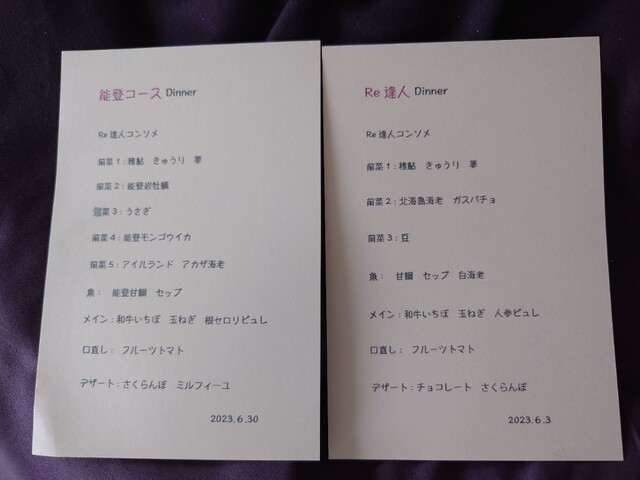 能登コース Dinner
Re 達人コンソメ
前菜1:稚鮎 きゅうり 蓼
前菜2:能登岩牡蠣
前菜3:うさぎ
前菜4:能登モンゴウイカ
前菜5:アイルランド アカザ海老
魚: 能登甘鯛 セップ
メイン:和牛いちぼ 玉ねぎ 根セロリピュレ
口直し: フルーツトマト
デザート:さくらんぼ ミルフィーユ
2023.6.30
Re 達人 Dinner
Re 達人コンソメ
前菜1:稚鮎 きゅうり 蓼
前菜2:北海島海老 ガスパチョ
前菜3:豆
魚: 甘鯛 セップ 白海老
メイン:和牛いちぼ 玉ねぎ 人参ピュレ
口直し: フルーツトマト
デザート:チョコレート さくらんぼ
2023.6.3